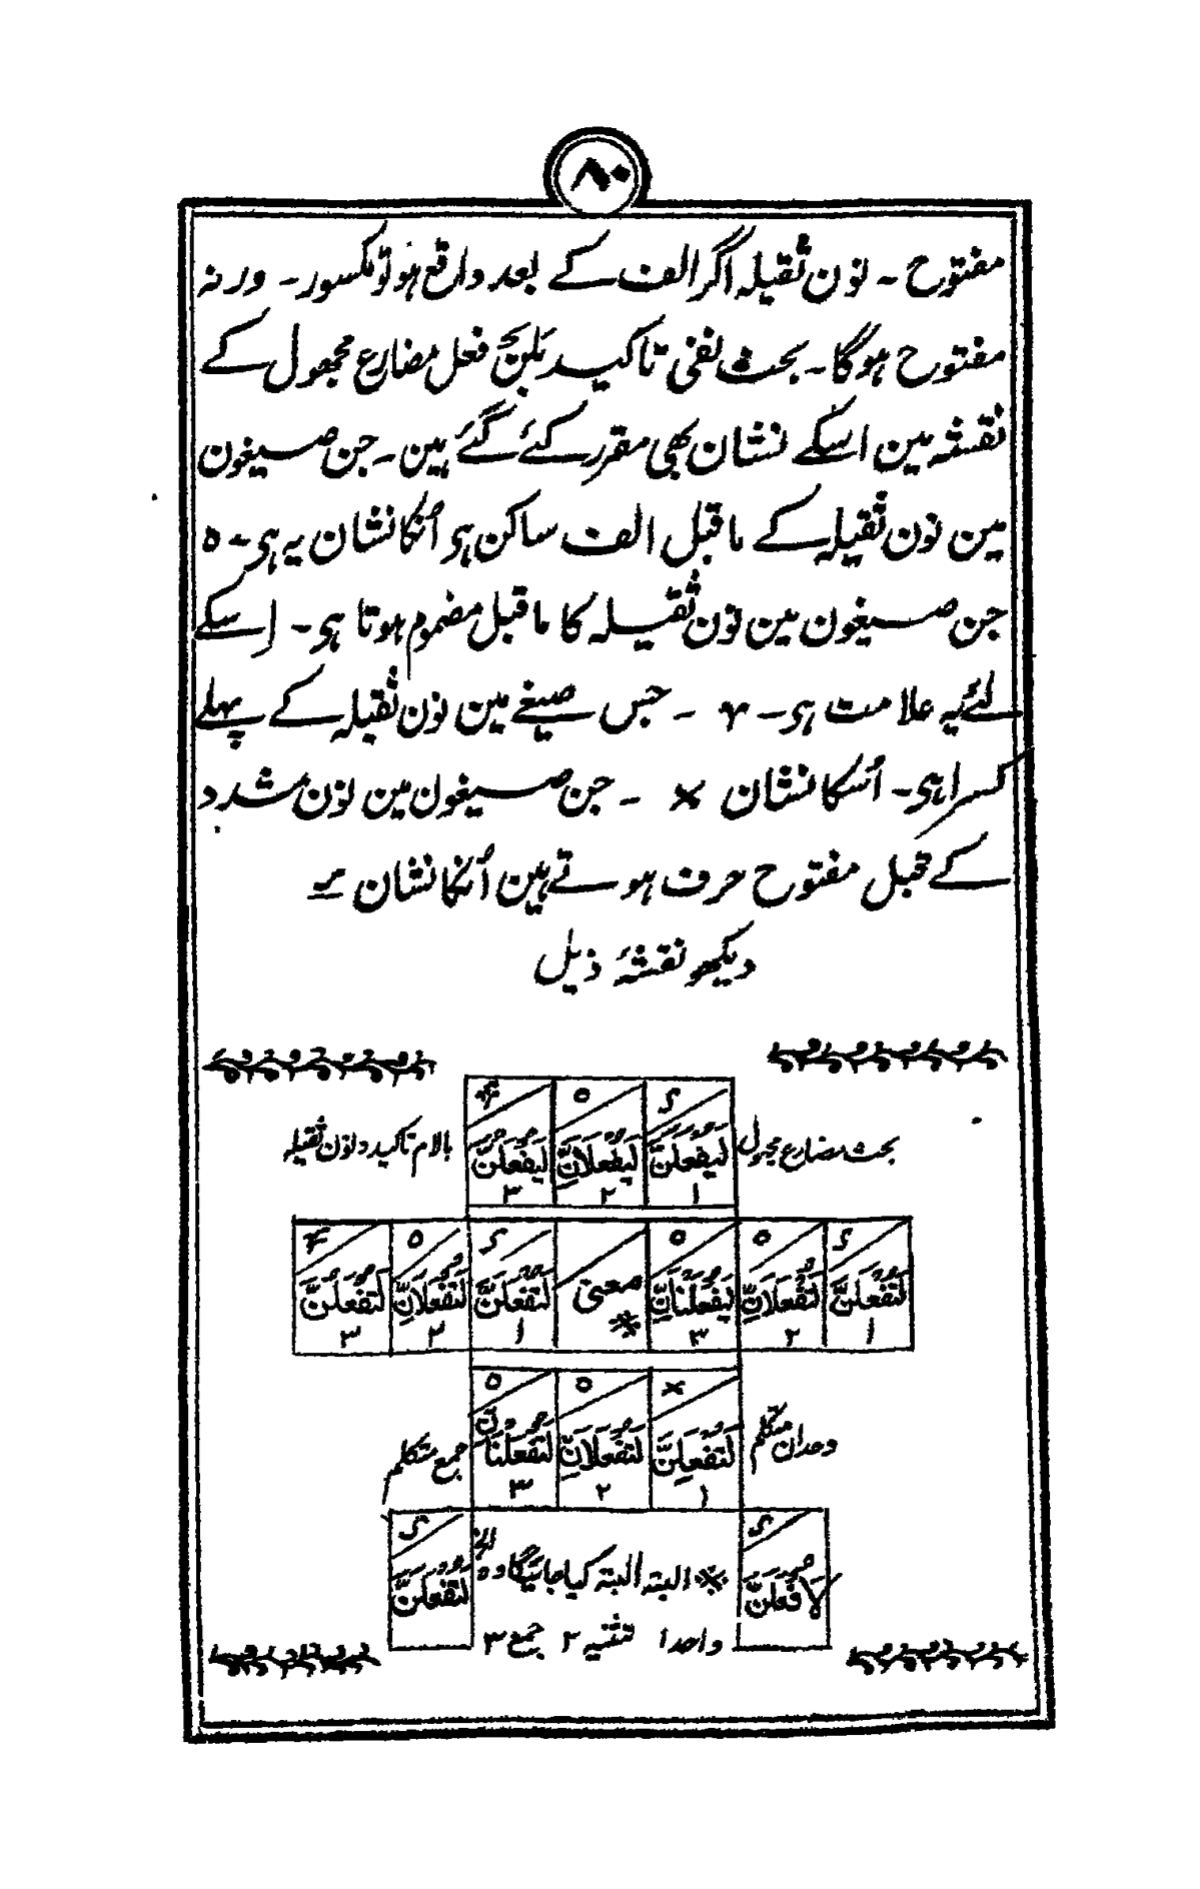 ۸۰
مفتوح ۔ نون ثقیلہ اگر الف کے بعد واقع ہو تو مکسور ۔ ورنہ
مفتوح ہوگا ۔ بحث نفی تاکید بلن فعل مضارع مجہول کے
نقشہ مین اسکے نشان بھی مقرر کئے گئے ہین ۔ جن صیغون
مین نون ثقیلہ کے ماقبل الف ساکن ہی اُنکا نشان یہ ہی ۔ ہ
جن صیغون مین نون ثقیلہ کا ماقبل مضموم ہوتا ہی ۔ اِسکے
لئے یہ علامت ہی ۔ ۔ جس صیغے مین نون ثقیلہ کے پہلے
کسرا ہی ۔ اُسکا نشان × ۔ جن صیغون مین نون مشدد
کے قبل مفتوح حرف ہوتے ہین اُنکا نشان
دیکھو نقشۂ ذیل
بحث مضارع مجہول
لَیُفْعَلَنَّ ۱
ہ لَیُفْعَلَانِّ ۲
لَیُفْعَلُنَّ ۳
بالام تاکید و نون ثقیلہ
لَتُفْعَلَنَّ ۱
ہ لَتُفْعَلَانِّ ۲
ہ لَیُفْعَلْنَانِّ ۳
معنی *
لَتُفْعَلَنَّ ۱
ہ لَتُفْعَلَانِّ ۲
لَتُفْعَلُنَّ ۳
وحدان متکلم
× لَتُفْعَلِنَّ ۱
ہ لَتُفْعَلَانِّ ۲
ہ لَتُفْعَلْنَانِّ ۳
جمع متکلم
لَاُفْعَلَنَّ
* البتہ البتہ کیا جائیگا وہ الخ
لَنُفْعَلَنَّ
واحد ۱ تثنیہ ۲ جمع ۳